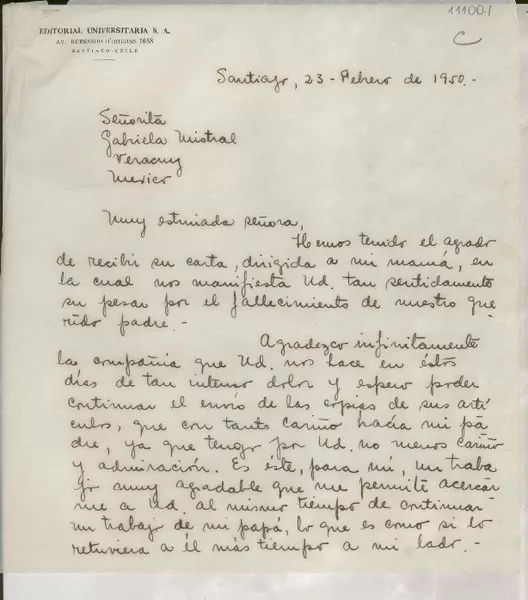 111001
C
EDITORIAL UNIVERSITARIA S. A.
AV. BERNARDO O'HIGGINS 1058
SANTIAGO-CHILE
Santiago, 23 - Febrero de 1950.-
Señorita
Gabriela Mistral
Veracruz
Mexico
Muy estimada señora,
Hemos tenido el agrado
de recibir su carta, dirigida a mi mamá, en
la cual nos manifiesta Ud. tan sentidamente
su pesar por el fallecimiento de nuestro que
rido padre.-
Agradezco infinitamente
la compañia que Ud. nos hace en éstos
días de tan intenso dolor y espero poder
continuar el envío de las copias de sus artí
culos, que con tanto cariño hacía mi pa
dre, ya que tengo por Ud. no menos cariño
y admiración. Es éste, para mí, un traba
jo muy agradable que me permite acercar
me a Ud. al mismo tiempo de continuar
un trabajo de mi papá, lo que es como si lo
retuviera a él más tiempo a mi lado.-